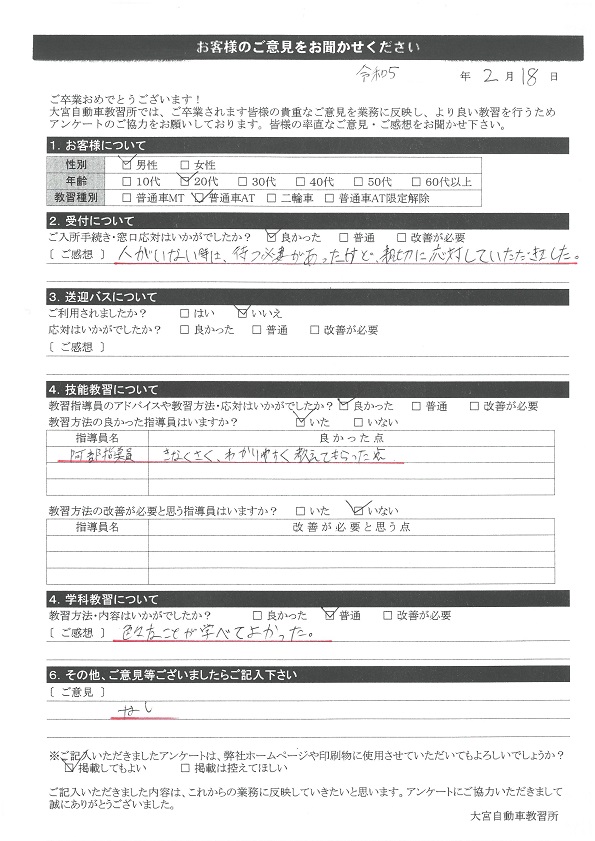 お客様のご意見をお聞かせください
令和5 年 2 月 18 日
ご卒業おめでとうございます！
大宮自動車教習所では、ご卒業されます皆様の貴重なご意見を業務に反映し、より良い教習を行うため
アンケートのご協力をお願いしております。皆様の率直なご意見・ご感想をお聞かせ下さい。
1. お客様について
性別 ☑男性 □女性
年齢 □10代 ☑20代 □30代 □40代 □50代 □60代以上
教習種別 □普通車MT ☑普通車AT □二輪車 □普通車AT限定解除
2. 受付について
ご入所手続き・窓口応対はいかがでしたか？ ☑良かった □普通 □改善が必要
〔 ご感想 〕 人がいない時は、待つ必要があったけど、親切に応対していただきました。
3. 送迎バスについて
ご利用されましたか？ □はい ☑いいえ
応対はいかがでしたか？ □良かった □普通 □改善が必要
〔 ご感想 〕
4. 技能教習について
教習指導員のアドバイスや教習方法・応対はいかがでしたか？ ☑良かった □普通 □改善が必要
教習方法の良かった指導員はいますか？ ☑いた □いない
指導員名 良かった点
阿部指導員 きなくさく、わかりやすく教えてもらった点
教習方法の改善が必要と思う指導員はいますか？ □いた ☑いない
指導員名 改善が必要と思う点
4. 学科教習について
教習方法・内容はいかがでしたか？ □良かった ☑普通 □改善が必要
〔 ご感想 〕 色々なことが学べてよかった。
6. その他、ご意見等ございましたらご記入下さい
〔 ご意見 〕
なし
※ご記入いただきましたアンケートは、弊社ホームページや印刷物に使用させていただいてもよろしいでしょうか？
☑掲載してもよい □掲載は控えてほしい
ご記入いただきました内容は、これからの業務に反映していきたいと思います。アンケートにご協力いただきまして
誠にありがとうございました。
大宮自動車教習所